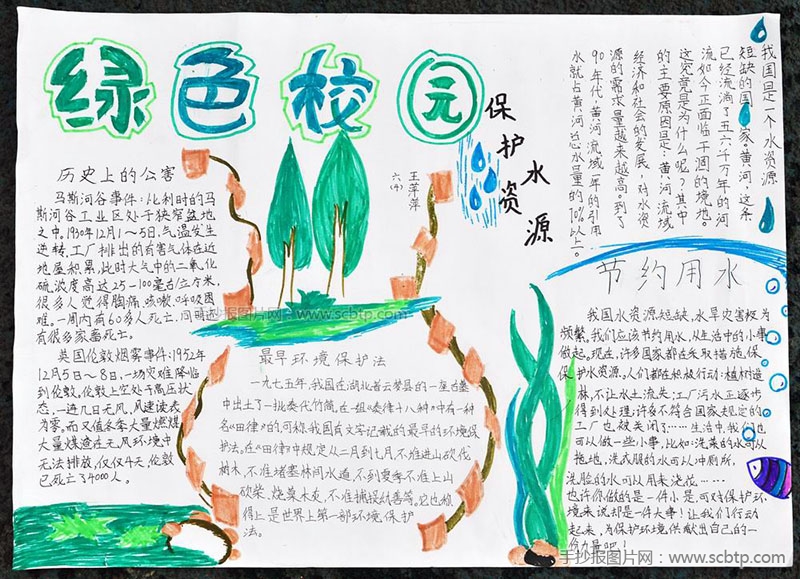 绿色校园
历史上的公害
马斯河谷事件:比利时的马
斯河谷工业区处于狭窄盆地
之中,1930年12月1～5日,气温发生
逆转,工厂排出的有害气体在近
地层积累,此时大气中的二氧化
硫浓度高达25-100毫克/立方米,
很多人觉得胸痛、咳嗽、呼吸困
难。一周内有60多人死亡,同时还
有很多家畜死亡。
英国伦敦烟雾事件:1952年
12月5日～8日,一场灾难降临
到伦敦。伦敦上空处于高压状
态,一连几日无风,风速读表
为零。而又值冬季大量燃煤
大量煤渣在无风环境中
无法排放,仅仅4天,伦敦
已死亡了4000人。
六(4)
王萍萍
最早环境保护法
一九七五年,我国在湖北省云梦县的一座古墓
中出土了一批秦代竹简。在一组《秦律十八种》中有一种
名《田律》的,可称我国有文字记载的最早的环境保
护法。在《田律》中规定从二月到七月,不准进山砍伐
树木,不准堵塞林间水道,不到夏季不准上山
砍柴、烧草木灰,不准捕捉幼兽等。它也称
得上是世界上第一部环境保护
法。
保护水资源
我国是一个水资源
短缺的国家。黄河,这条
已经流淌了五六千万年的河
流如今正面临干涸的境地。
这究竟是为什么呢?其中
的主要原因是:黄河流域
经济和社会的发展,对水资
源的需求量越来越高。到了
90年代,黄河流域一年的引用
水就占黄河总水量的70%以上。
节约用水
我国水资源短缺,水旱灾害极为
频繁,我们应该节约用水,从生活中的小事
做起。现在,许多国家都在采取措施,保
保护水资源。人们都在积极行动:植树造
林,不让水土流失;工厂污水正逐步
得到处理;许多不符合国家规定的
工厂也被关闭了……生活中,我们也
可以做一些小事,比如:洗菜的水可以
拖地,洗衣服的水可以冲厕所,
洗脸的水可以用来浇花……
也许你做的是一件小是,可对保护环
境来说却是一件大事!让我们行动
起来,为保护环境供献出自己的一
份力量吧!
手抄报图片网:www.scbtp.com
手抄报图片网:www.scbtp.com